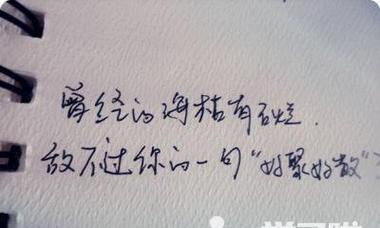 曾经的海枯石烂.
敌不过你的一句“好聚好散”